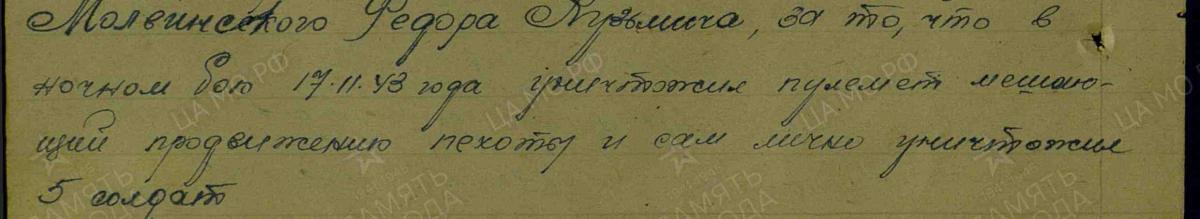 Молвинского Федора Кузьмича, за то, что в
ночном бою 17.11.43 года уничтожил пулемет мешаю-
щий продвижению пехоты и сам лично уничтожил
5 солдат